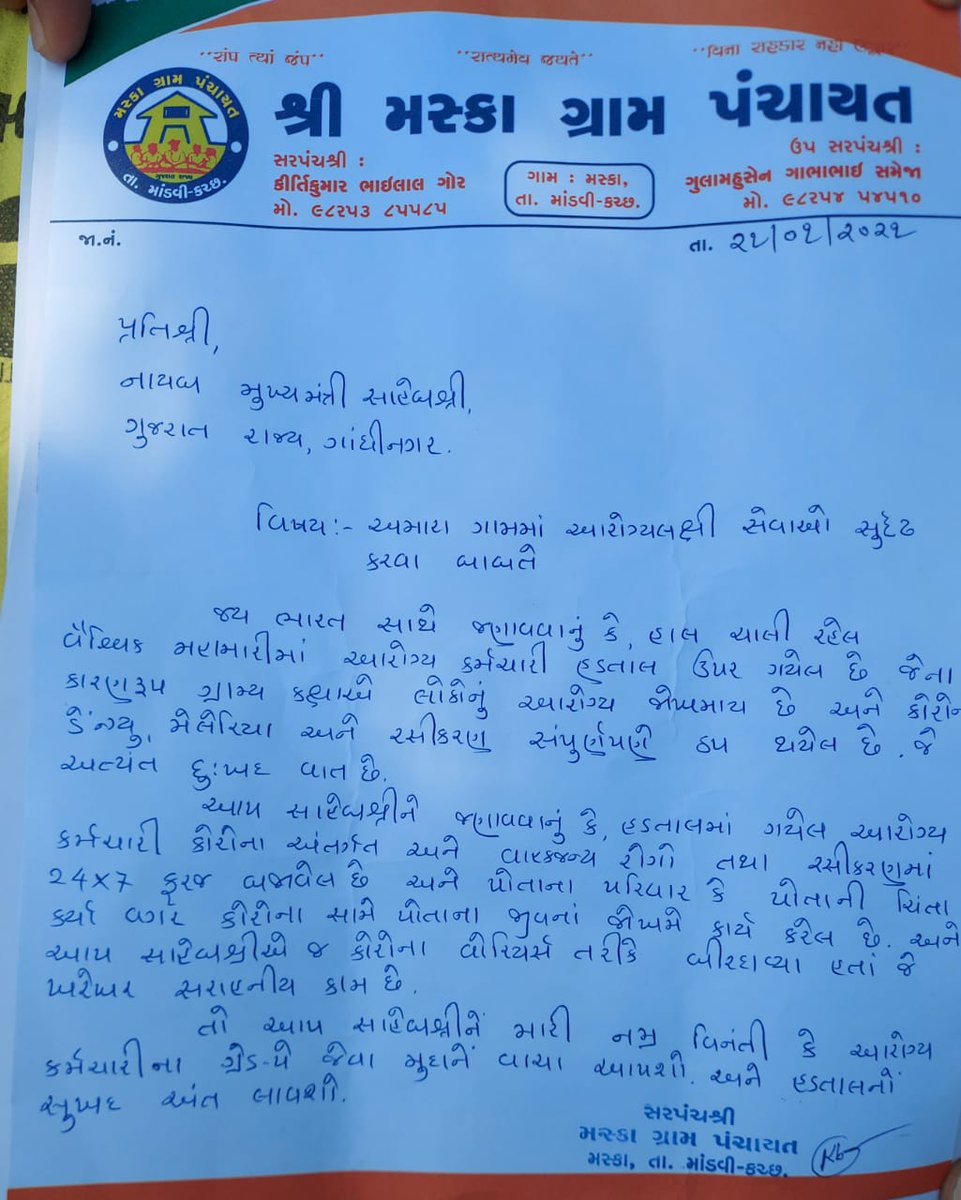 "સંપ ત્યાં જંપ" "સત્યમેવ જયતે" "વિના સહકાર નહીં
મસ્કા ગ્રામ પંચાયત
ગુજરાત રાજ્ય
તા. માંડવી-કચ્છ.
શ્રી મસ્કા ગ્રામ પંચાયત
સરપંચશ્રી :
કીર્તિકુમાર ભાઈલાલ ગોર
મો. ૯૮૨૫૩ ૮૫૫૮૫
ગામ : મસ્કા,
તા. માંડવી-કચ્છ.
ઉપ સરપંચશ્રી :
ગુલામહુસેન ગાભાભાઈ સમેજા
મો. ૯૮૨૫૪ ૫૪૫૧૦
જા.નં. તા. ૨૧/૦૧/૨૦૨૧
પ્રતિશ્રી,
નાયબ મુખ્યમંત્રી સાહેબશ્રી,
ગુજરાત રાજ્ય, ગાંધીનગર.
વિષય:- અમારા ગામમાં આરોગ્યલક્ષી સેવાઓ સુદૃઢ
કરવા બાબતે
જય ભારત સાથે જણાવવાનું કે, હાલ ચાલી રહેલ
વૈશ્વિક મહામારીમાં આરોગ્ય કર્મચારી હડતાલ ઉપર ગયેલ છે જેના
કારણરૂપ ગ્રામ્ય કક્ષાએ લોકોનું આરોગ્ય જોખમાય છે અને કોરોન
ડેંગ્યુ, મેલેરિયા અને રસીકરણ સંપુર્ણપણે ઠપ થયેલ છે. જે
અત્યંત દુઃખદ વાત છે.
આપ સાહેબશ્રીને જણાવવાનું કે, હડતાલમાં ગયેલ આરોગ્ય
કર્મચારી કોરોના અંતર્ગત અને વાહકજન્ય રોગો તથા રસીકરણમાં
24x7 ફરજ બજાવેલ છે અને પોતાના પરિવાર કે પોતાની ચિંતા
કર્યા વગર કોરોના સામે પોતાના જીવનાં જોખમે કાર્ય કરેલ છે. અને
આપ સાહેબશ્રીએ જ કોરોના વોરિયર્સ તરીકે બીરદાવ્યા હતાં જે
ખરેખર સરાહનીય કામ છે.
તો આપ સાહેબશ્રીનેં મારી નમ્ર વિનંતી કે આરોગ્ય
કર્મચારીના ગ્રેડ-પે જેવા મુદ્દાનેં વાચા આપશો. અને હડતાલનોં
સુખદ અંત લાવશો.
સરપંચશ્રી
મસ્કા ગ્રામ પંચાયત
મસ્કા, તા. માંડવી-કચ્છ.